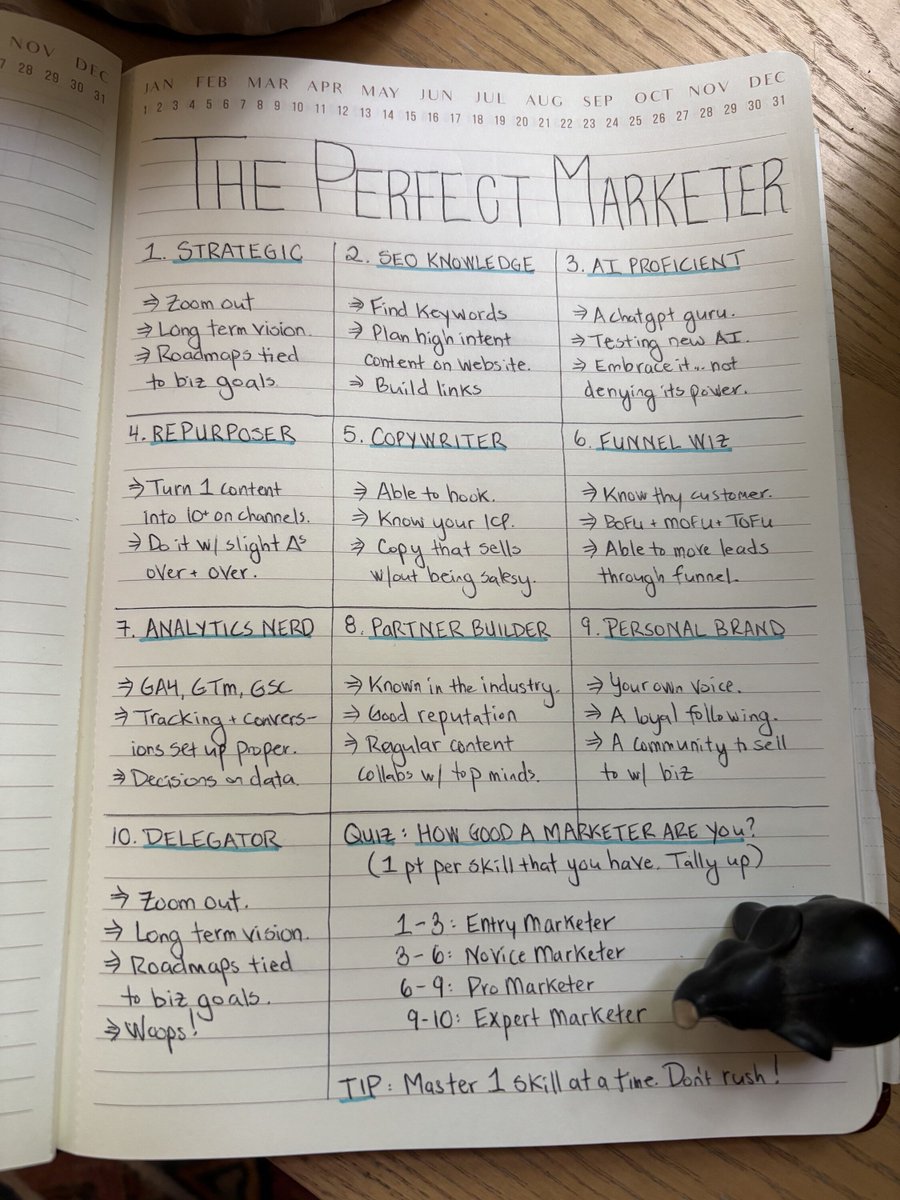 NOV DEC
7 28 29 30 31
JAN FEB MAR APR MAY JUN JUL AUG SEP OCT NOV DEC
1 2 3 4 5 6 7 8 9 10 11 12 13 14 15 16 17 18 19 20 21 22 23 24 25 26 27 28 29 30 31
THE PERFECT MARKETER
1. STRATEGIC
⇒ Zoom out
⇒ Long term vision.
⇒ Roadmaps tied
to biz goals.
2. SEO KNOWLEDGE
⇒ Find Keywords
⇒ Plan high intent
content on website.
⇒ Build links
3. AI PROFICIENT
⇒ A chatgpt guru.
⇒ Testing new AI.
⇒ Embrace it... not
denying its power.
4. REPURPOSER
⇒ Turn 1 content
into 10+ on channels.
⇒ Do it w/ slight Δs
over + over.
5. COPYWRITER
⇒ Able to hook.
⇒ Know your ICP.
⇒ Copy that sells
w/out being salesy.
6. FUNNEL WIZ
⇒ Know thy customer.
⇒ BOFU + MOFU + TOFU
⇒ Able to move leads
through funnel.
7. ANALYTICS NERD
⇒ GA4, GTM, GSC
⇒ Tracking + convers-
ions set up proper.
⇒ Decisions on data.
8. PARTNER BUILDER
⇒ Known in the industry.
⇒ Good reputation
⇒ Regular content
collabs w/ top minds.
9. PERSONAL BRAND
⇒ Your own voice.
⇒ A loyal following.
⇒ A community to sell
to w/ biz
10. DELEGATOR
⇒ Zoom out.
⇒ Long term vision.
⇒ Roadmaps tied
to biz goals.
⇒ Woops!
QUIZ: HOW GOOD A MARKETER ARE YOU?
(1 pt per skill that you have. Tally up)
1-3: Entry Marketer
3-6: Novice Marketer
6-9: Pro Marketer
9-10: Expert Marketer
TIP: Master 1 skill at a time. Don't rush!